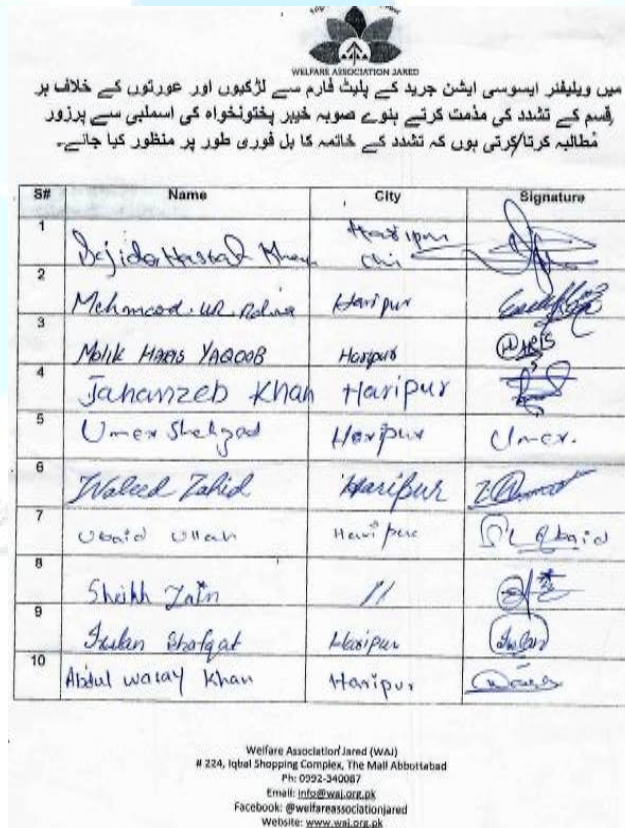 WELFARE ASSOCIATION JARED
میں ویلیفئر ایسوسی ایشن جرید کے پلیٹ فارم سے لڑکیوں اور عورتوں کے خلاف ہر
قسم کے تشدد کی مذمت کرتے ہنوے صوبہ خیبر پختونخواہ کی اسمبلی سے پرزور
مُطالبہ کرتا/کرتی ہوں کہ تشدد کے خاتمہ کا بل فوری طور پر منظور کیا جائے۔
S# Name City Signature
1 Haripur
2 Mehmood. UR. Haripur
3 Malik HARIS YAQOOB Haripur HARIS
4 Jahanzeb Khan Haripur
5 Umer Shehzad Haripur Umer.
6 Waleed Zahid Haripur
7 Ubaid Ullah Haripur
8 Sheikh Zain //
9 Shafqat Haripur
10 Abdul wasay Khan Haripur
Welfare Association Jared (WAJ)
# 224, Iqbal Shopping Complex, The Mall Abbottabad
Ph: 0992-340087
Email: info@waj.org.pk
Facebook: @welfareassociationjared
Website: www.waj.org.pk